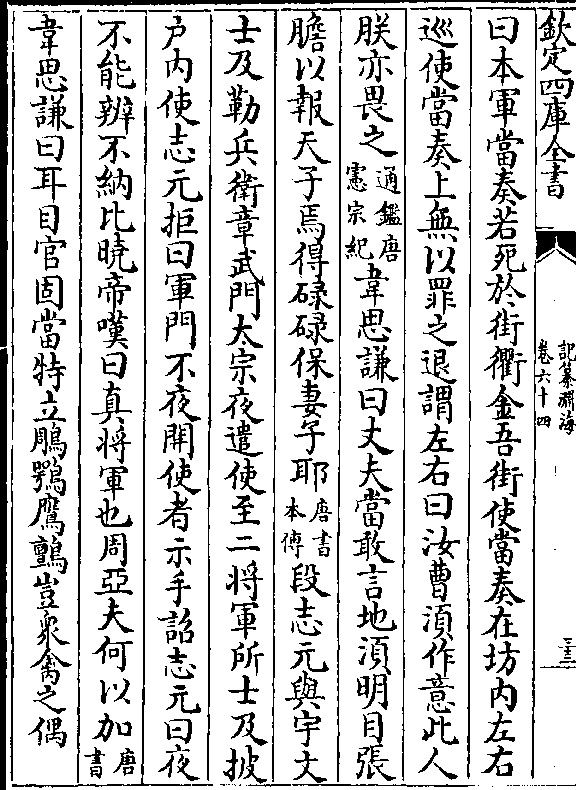 欽定四庫全書
記纂淵海
卷六十四
三三
曰本軍當奏若死於街衢金吾街使當奏在坊内左右
巡使當奏上無以罪之退謂左右曰汝曹須作意此人
朕亦畏之通鑑唐憲宗紀韋思謙曰丈夫當敢言地須明目張
膽以報天子焉得碌碌保妻子耶唐書本傳段志元與宇文
士及勒兵衛章武門太宗夜遣使至二將軍所士及披
户内使志元拒曰軍門不夜開使者示手詔志元曰夜
不能辨不納比曉帝嘆曰真將軍也周亞夫何以加唐書
韋思謙曰耳目官固當特立鵰鶚鷹鸇豈衆禽之偶